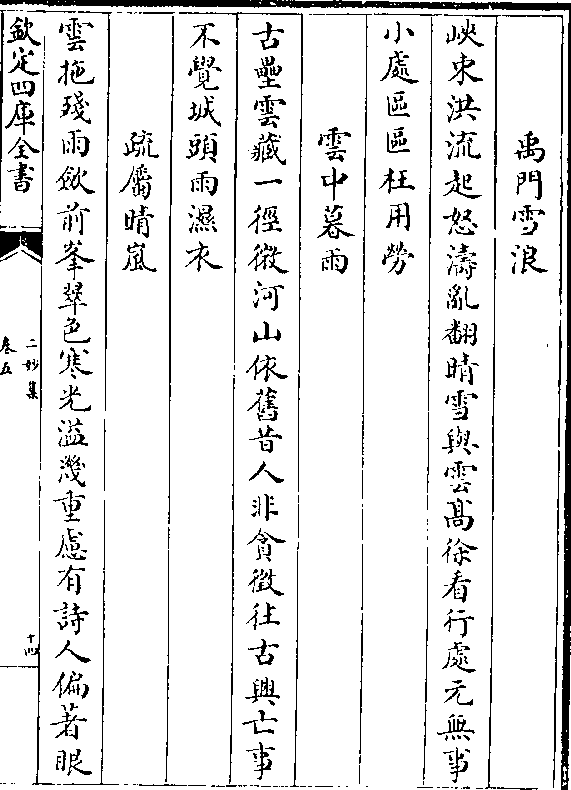 禹門雪浪
峽束洪流起怒濤亂翻晴雪與雲髙徐看行處元無事
小處區區枉用勞
雲中暮雨
古壘雲藏一徑微河山依舊昔人非貪徴往古興亡事
不覺城頭雨濕衣
疏屬晴嵐
雲拖殘雨斂前峯翠色寒光溢幾重慮有詩人偏著眼
欽定四庫全書
二妙集
卷五
十四